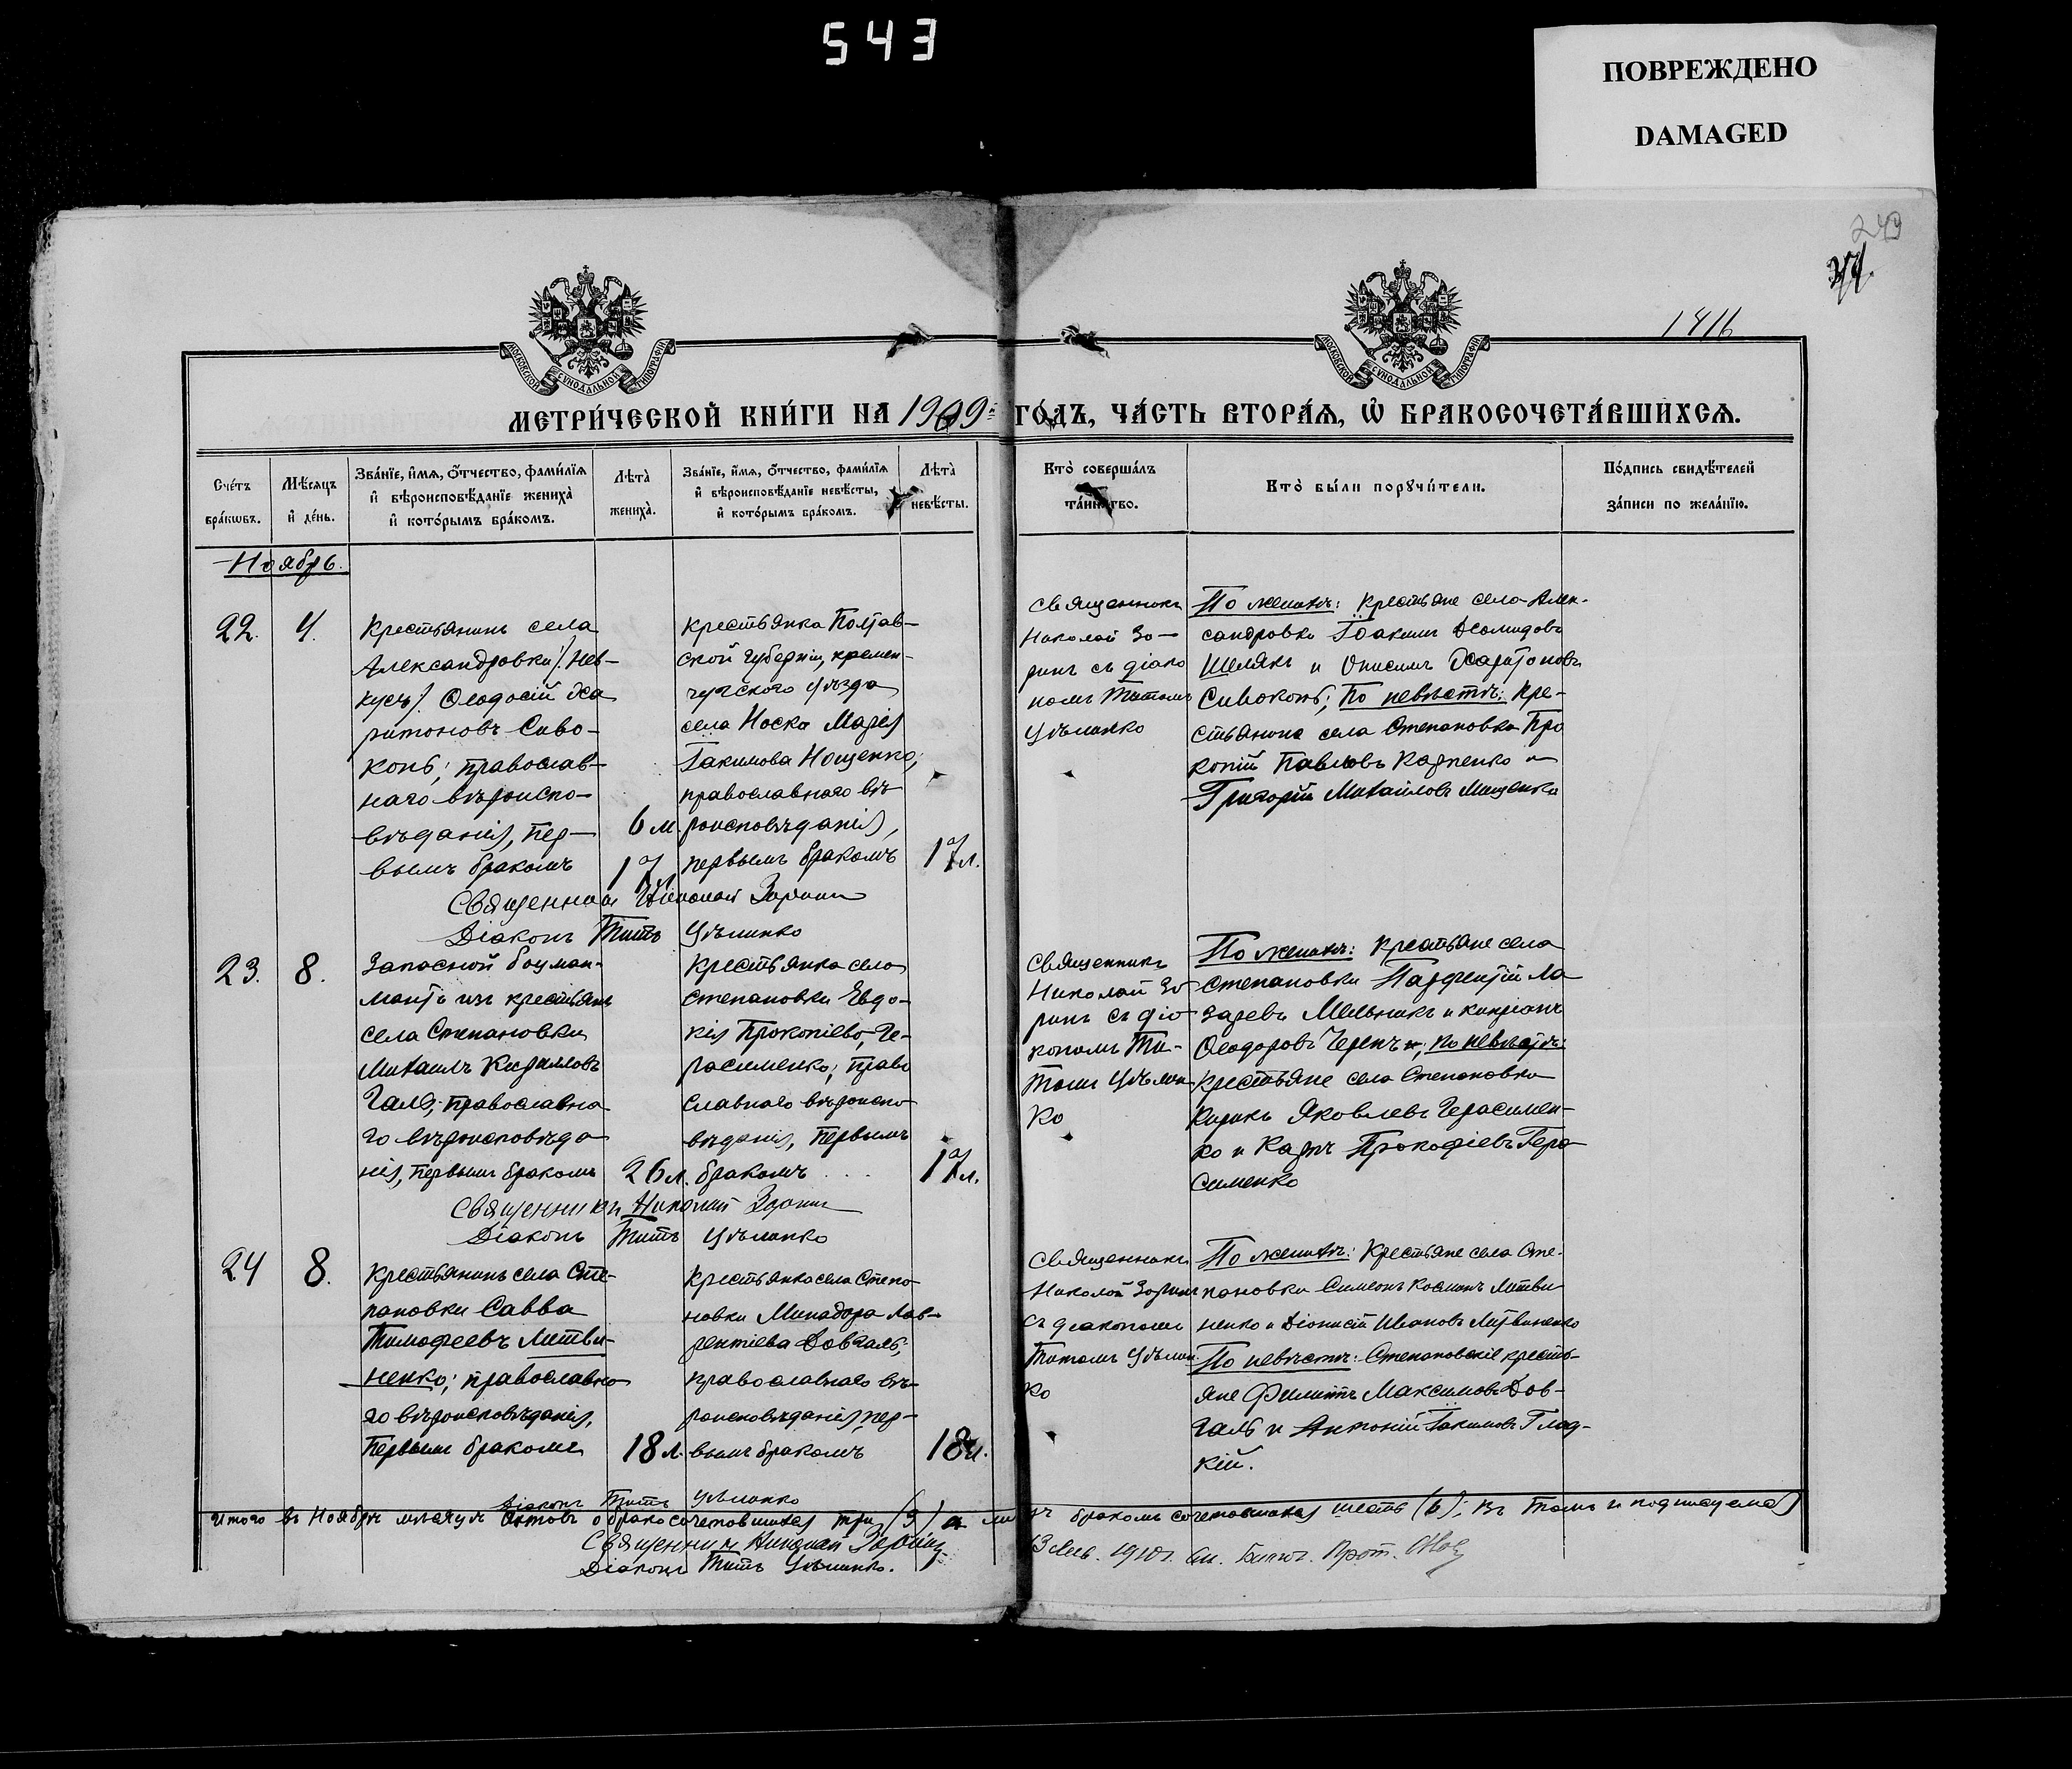 543
ПОВРЕЖДЕНО
DAMAGED
249
1416
МОСКОВСКОЙ СѴНОДАЛЬНОЙ ТИПОГРАФІИ
МОСКОВСКОЙ СѴНОДАЛЬНОЙ ТИПОГРАФІИ
МЕТРИ́ЧЕСКОЙ КНИ́ГИ НА 1909 ГО́ДЪ, ЧА́СТЬ ВТОРА́Ѧ, Ѡ҆ БРАКОСОЧЕТА́ВШИХСѦ.
Сче́тъ
бра́кѡвъ.
Мѣ́сѧцъ
и҆ де́нь.
Зва́нїе, и҆́мѧ, ѻ҆́тчество, фами́лїѧ
и҆ вѣроисповѣ́данїе жениха̀
и҆ кото́рымъ бра́комъ.
Лѣта̀
жениха̀.
Зва́нїе, и҆́мѧ, ѻ҆́тчество, фами́лїѧ
и҆ вѣроисповѣ́данїе невѣ́сты,
и҆ кото́рымъ бра́комъ.
Лѣта̀
невѣ́сты.
Кто̀ соверша́лъ
та́инство.
Кто̀ бы́ли порꙋчи́тели.
По́дпись свидѣ́телей
за́писи по жела́нїю.
Ноябрь.
22.
4.
Крестьянинъ села
Александровки /: Нев-
кусъ/ Ѳеодосій Ха
ритоновъ Сиво-
конь; православ-
наго вѣроиспо-
вѣданія, пер-
вымъ бракомъ
6 м.
17
Крестьянка Полтав-
ской губерніи, кремен-
чугскаго уѣзда
села Носки Марія
Іакимова Нощенко;
православнаго вѣ
роисповѣданія,
первымъ бракомъ
17 л.
Священникъ
Николай Зо-
ринъ съ діако
номъ Титомъ
Уѣманко
По женихѣ: крестьяне села Алек-
сандровки Іоакимъ Діомидовъ
Шелякъ и Онисимъ Харитоновъ
Сивоконь; По невѣстѣ: кре-
стьянина села Степановки Про
копій Павловъ Карпенко и
Григорій Михайловъ Мищенко
Священникъ Николай Зоринъ
Діаконъ Титъ Уѣманко
23.
8.
Запасной боцман-
матъ изъ крестьянъ
села Степановки
Михаилъ Кирилловъ
Галъ; православна
го вѣроисповѣда
нія, первымъ бракомъ
26 л.
Крестьянка села
Степановки Евдо-
кія Прокопіева Ге-
расименко; право
славнаго вѣроиспо-
вѣданія, первымъ
бракомъ
17 л.
Священникъ
Николай Зо
ринъ съ діа-
кономъ Ти-
томъ Уѣман
ко
По женихѣ: Крестьяне села
Степановки Парфентій Ла
заревъ Мельникъ и Кипріанъ
Ѳеодоровъ; по невѣстѣ:
крестьяне села Степановки
Кирикъ Яковлевъ Герасимен-
ко и Карпъ Прокофіевъ Гера
сименко
Священникъ Николай Зоринъ
Діаконъ Титъ Уѣманко
24
8.
Крестьянинъ села Сте-
пановки Савва
Тимофеевъ Литви-
ненко; православна
го вѣроисповѣданія,
Первымъ бракомъ
18 л.
Крестьянка села Степа-
новки Минадора Лав-
рентіева Довгаль;
православнаго вѣ-
роисповѣданія, пер-
вымъ бракомъ
18 л.
Священникъ
Николай Зоринъ
съ діакономъ
Титомъ Уѣман
ко
По женихѣ: Крестьяне села Сте-
пановки Симеонъ Косминъ Литви
ненко и Діонисій Ивановъ Литвиненко
По невѣстѣ: Степановскіе кресть-
яне Филиппъ Максимовъ Дов-
галь и Антоній Іакимовъ Глад-
кій.
Діаконъ Титъ Уѣманко
Итого въ Ноябрѣ мѣсяцѣ актовъ о бракосочетавшихся три (3) а лицъ бракомъ сочетавшихся шесть (6); въ томъ и подписуемся
Священникъ Николай Зоринъ
Діаконъ Титъ Уѣманко.
1910 г. Прот.